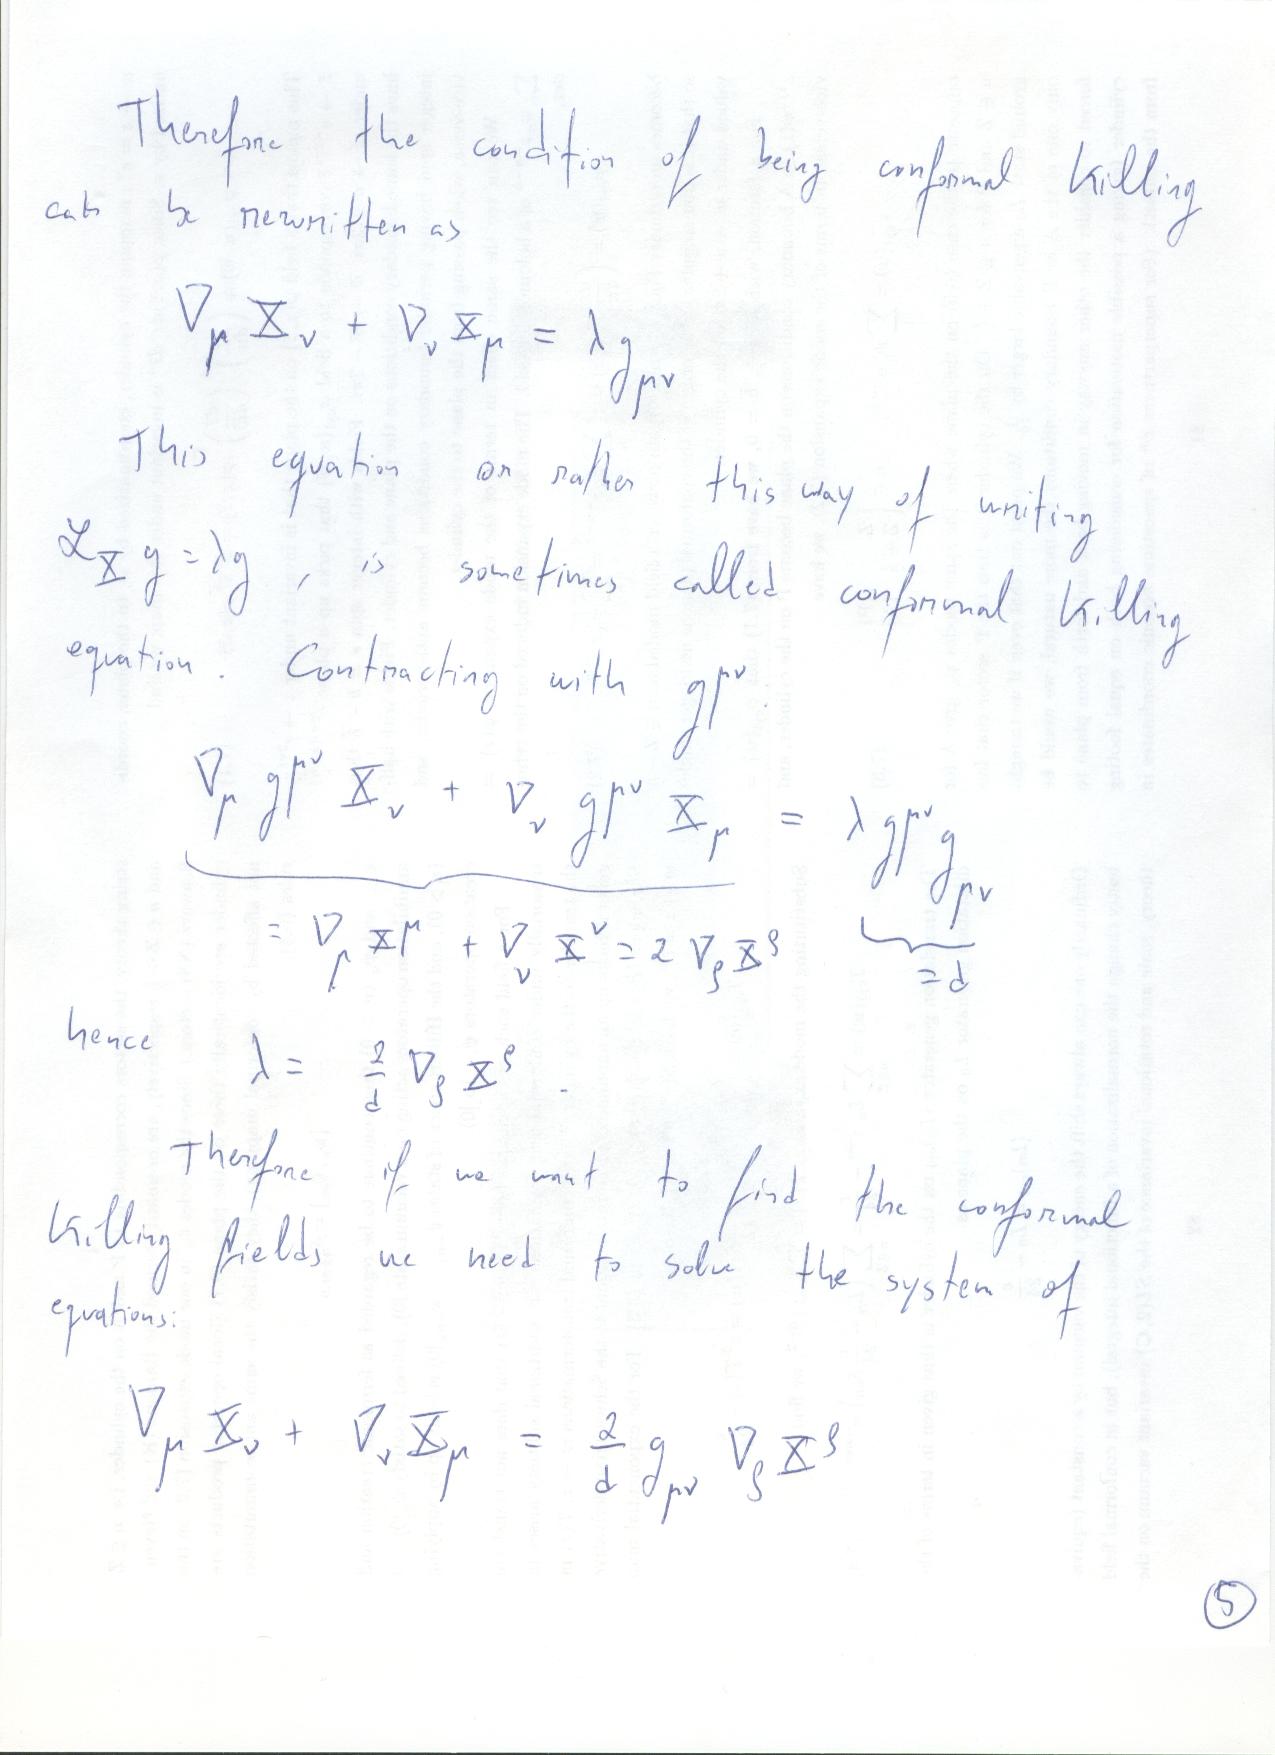 Therefore the condition of being conformal Killing
can be rewritten as
∇_μ X_ν + ∇_ν X_μ = λ g_μν
This equation or rather this way of writing
ℒ_X g = λg , is sometimes called conformal Killing
equation. Contracting with g^μν:
∇_μ g^μν X_ν + ∇_ν g^μν X_μ = λ g^μν g_μν
= ∇_μ X^μ + ∇_ν X^ν = 2 ∇_ρ X^ρ = d
hence λ = 2/d ∇_ρ X^ρ .
Therefore if we want to find the conformal
Killing fields we need to solve the system of
equations:
∇_μ X_ν + ∇_ν X_μ = 2/d g_μν ∇_ρ X^ρ
5